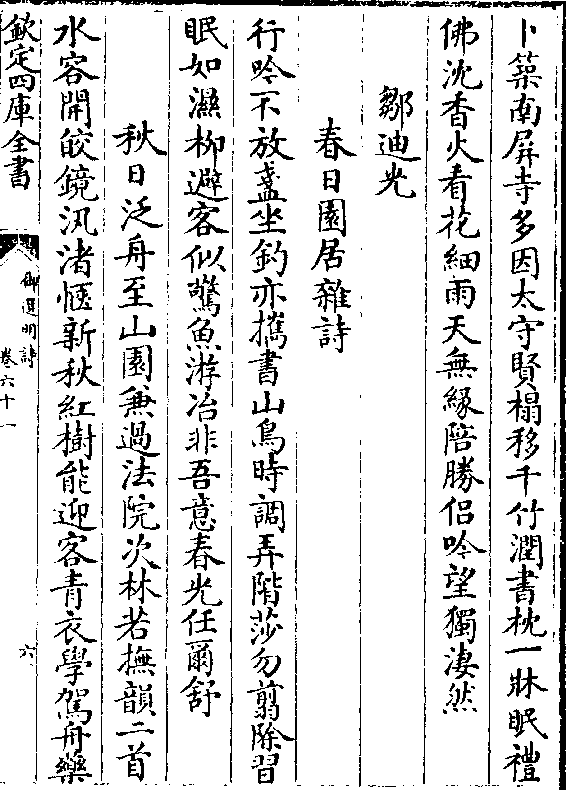 卜築南屏寺多因太守賢榻移千竹潤書枕一牀眠禮
佛沈香火看花細雨天無緣陪勝侣吟望獨淒然
鄒迪光
春日園居雜詩
行吟不放盞坐釣亦攜書山鳥時調弄階莎勿翦除習
眠如濕柳避客似驚魚游冶非吾意春光任爾舒
秋日泛舟至山園兼過法院次林若撫韻二首
水容開皎鏡汎渚愜新秋紅樹能迎客青衣學駕舟藥
欽定四庫全書
御選明詩
卷六十一
六